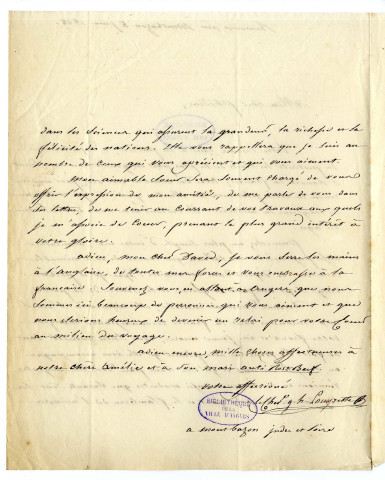 dans les sciences qui assurent la grandeur, la richesse et la
félicité des nations. Elle vous rappellera que je suis au
nombre de ceux qui vous apprécient et qui vous aiment.
Mon aimable Sœur sera souvent chargé de vous
offrir l'expression de mon amitié, de me parler de vous dans
ses lettres, de me tenir au courrant de vos travaux aux quels
je m'associe de cœur, prenant le plus grand intérêt à
votre gloire.
adieu, mon cher David, je vous serre les mains
à l'anglaise, de toutes mes forces et vous embrasse à la
française. Souvenez-vous, en allant à Angers, que nous
sommes ici beaucoup de personnes qui vous aiment et que
nous serions heureux de devenir un relai pour votre
au milieu du voyage.
adieu encore, mille choses affectueuses à
notre chère Amélie et à son mari
votre affectionné
BIBLIOTHÈQUE
DE LA
VILLE D'ANGERS
à montbazon indre et loire